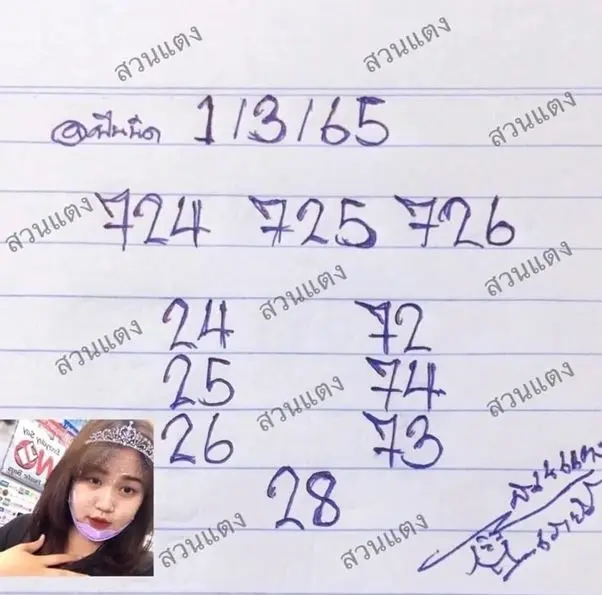 สวนแตง สวนแตง
1/3/65 สวนแตง
724 725 726
สวนแตง สวนแตง สวนแตง
24 72
สวนแตง
25 74
สวนแตง สวนแตง
26 73
28
สวนแตง สวนแตง